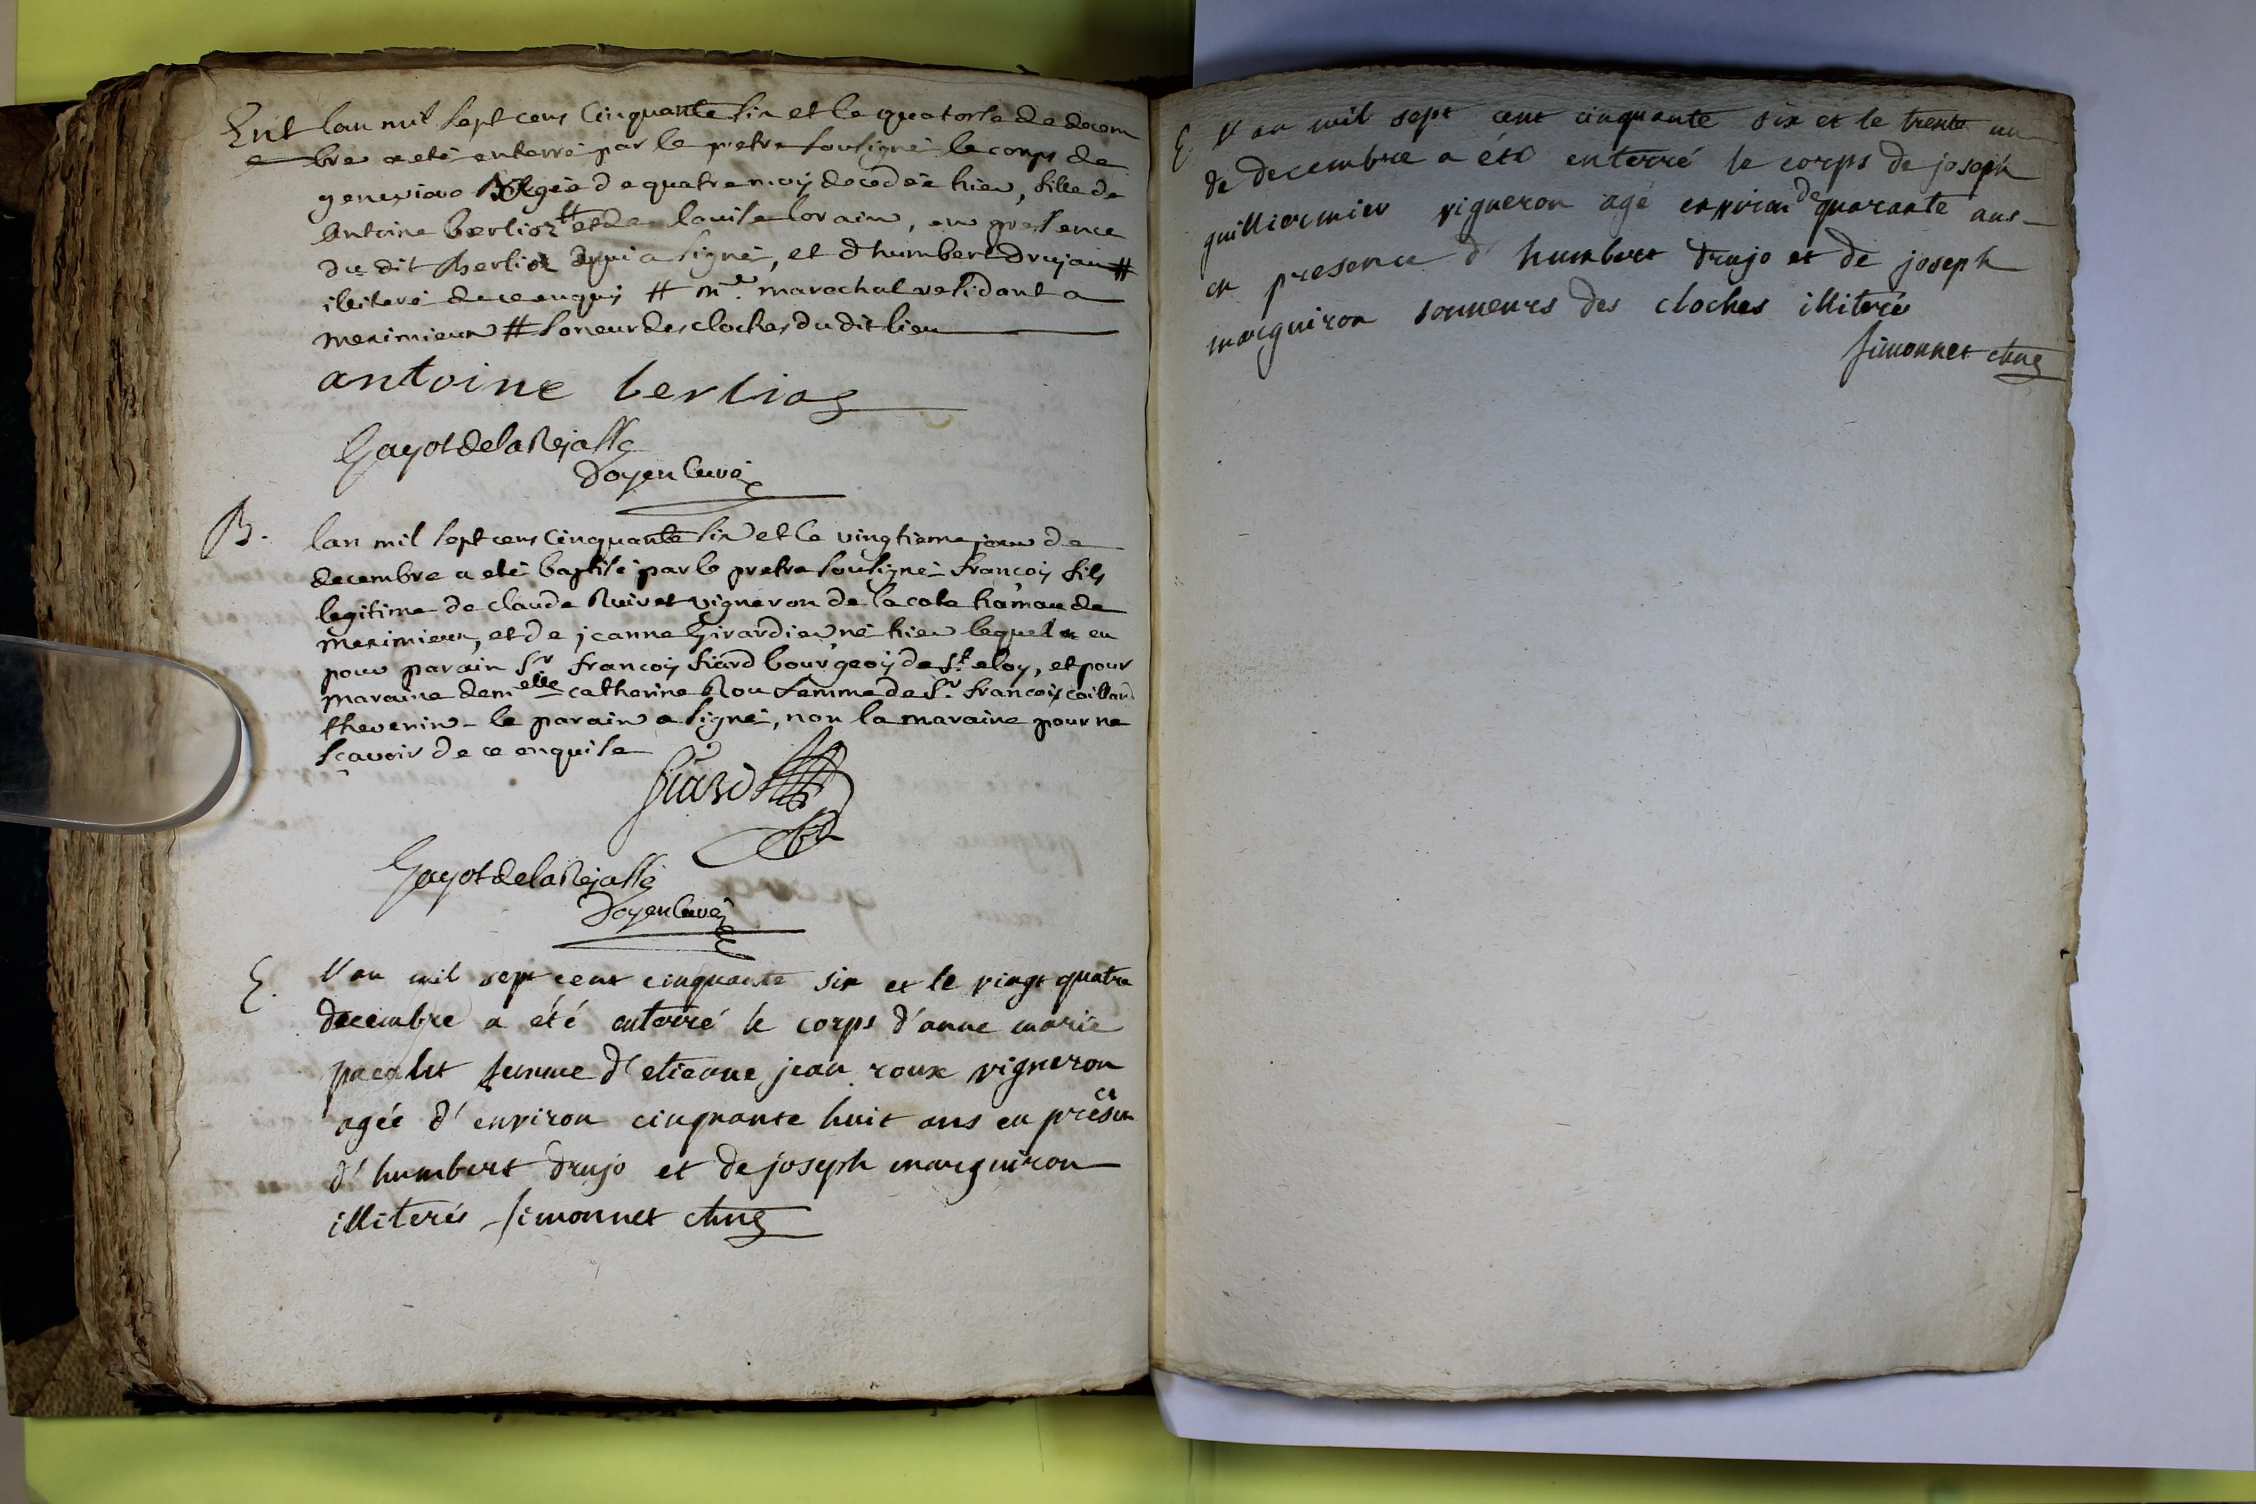 Ent lan mil sept cens Cinquante six et le quatorse de decem
bre a eté enterré par le pretre sousigné le corps de
genevieve agée de quatre moy decedée hier, fille de
Antoine berlioz # et de louise lorain, en presence
du dit Berlioz qui a signé, et d'humbert drujau #
illiteré de ce enquis # me. marechal residant a
meximieux # soneur des cloches du dit lieu
antoine berlioz
Gayot de la Rejasse
Doyen Curé
B. lan mil sept cens Cinquante six et le vingtieme jour de
decembre a eté baptisé par le pretre sousigné françois fils
legitime de claude Ruivet vigneron de la cote hamau de
meximieux, et de jeanne Girardier né hier lequel a eu
pour parain Sr françois fiard bourgeois de St eloy, et pour
maraine demelle catherine Rou femme de Sr françois caillard
thevenin - le parain a signé, non la maraine pour ne
sçavoir de ce enquise
fiard
Gayot de la Rejasse
Doyen Curé
E. l'an mil sept cent cinquante six et le vingt quatre
decembre a été enterré le corps d'anne marie
pacalet femme d'etienne jean roux vigneron
agée d'environ cinquante huit ans en presen ce
d'humbert drujo et de joseph marguiron
illiterés Simonnet chne
E. l'an mil sept cent cinquante six et le trente un
de decembre a été enterré le corps de joseph
guilliermier vigneron agé environ de quarante ans
en presence d'humbert drujo et de joseph
marguiron sonneurs des cloches illiteré
Simonnet chne